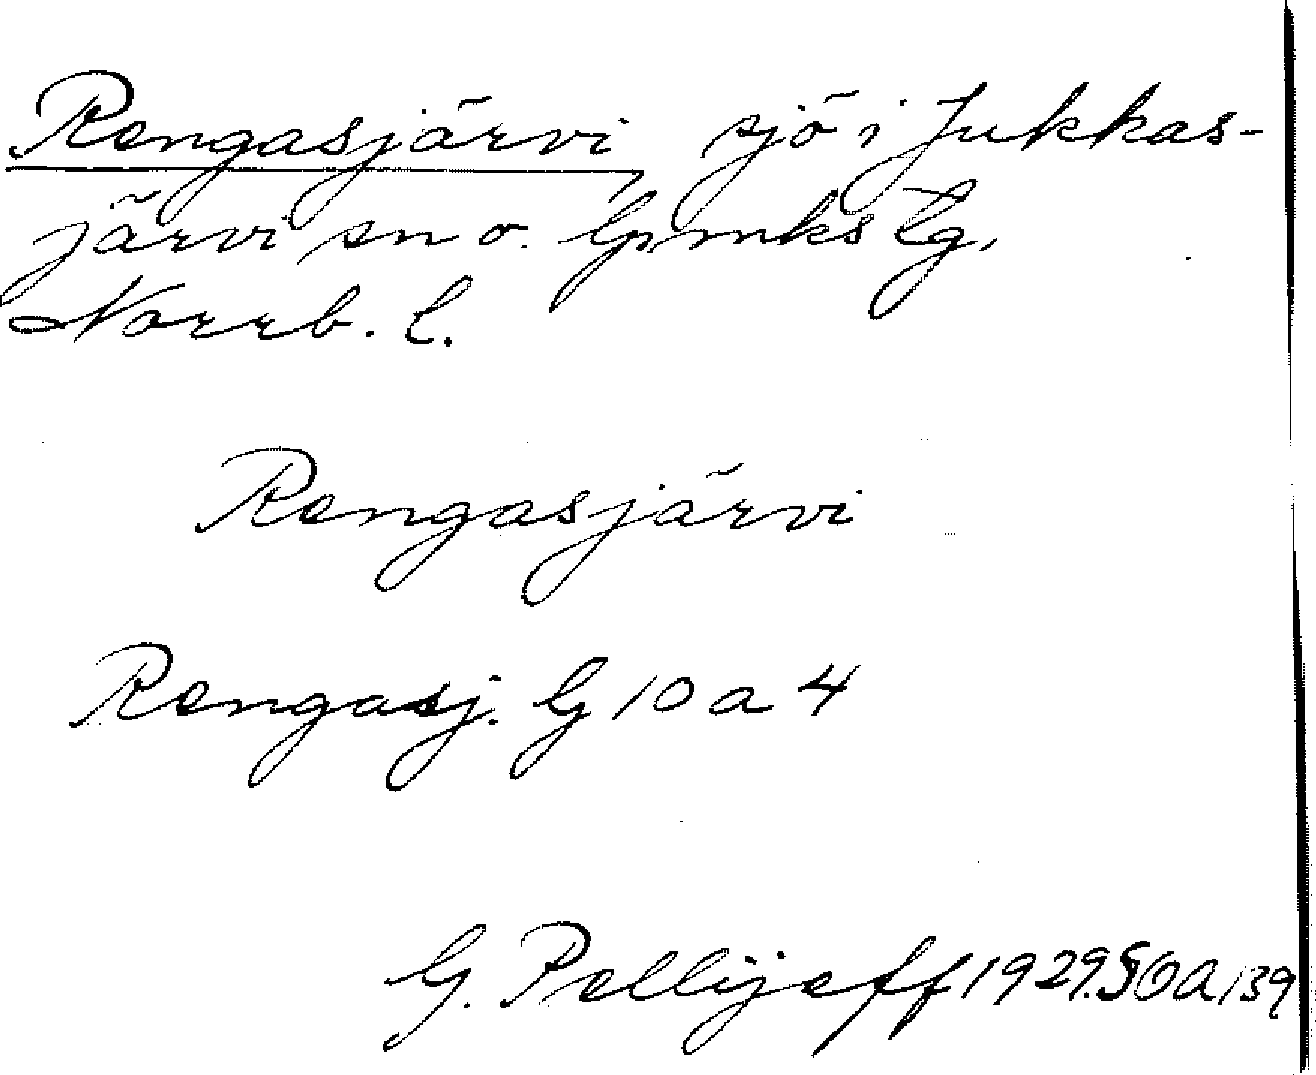 Rengasjärvi sjö i Jukkas-
järvi sn o. lpmks tg,
Norrb. l.
Rengasjärvi
Rengasj. G 10 a 4
G. Pellijeff 1929. SOA 139